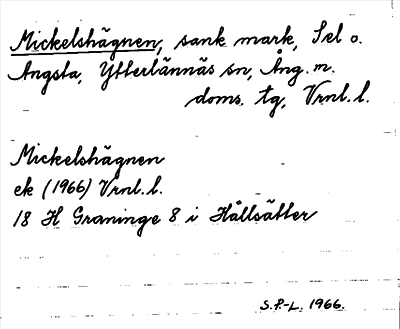 Mickelshägnen, sank mark, Sel o.
Angsta, Ytterlännäs sn, Ång. m.
doms. tg, Vrnl. l.
Mickelshägnen
ek (1966) Vrnl. l.
18 H Graninge 8 i Hållsätter
S.P.-L. 1966.